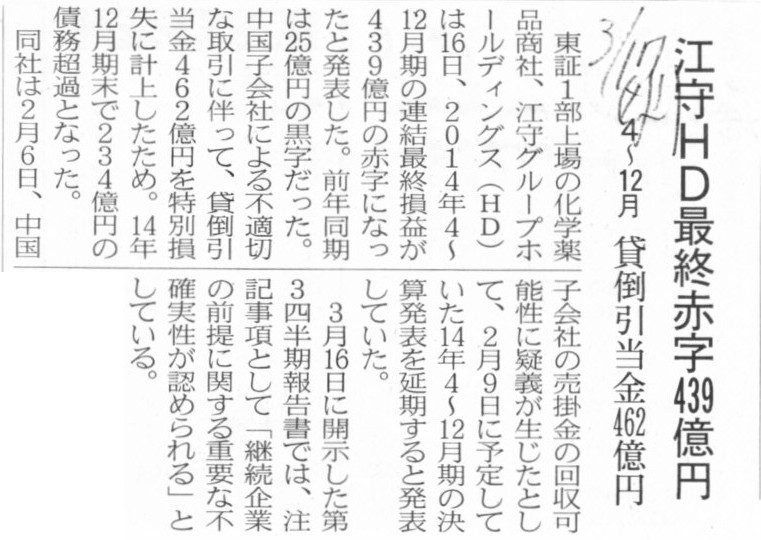 江守HD最終赤字439億円
4〜12月 貸倒引当金462億円
3/17
　東証1部上場の化学薬
品商社、江守グループホ
ールディングス（HD）
は16日、2014年4〜
12月期の連結最終損益が
439億円の赤字になっ
たと発表した。前年同期
は25億円の黒字だった。
中国子会社による不適切
な取引に伴って、貸倒引
当金462億円を特別損
失に計上したため。14年
12月期末で234億円の
債務超過となった。
　同社は2月6日、中国
子会社の売掛金の回収可
能性に疑義が生じたとし
て、2月9日に予定して
いた14年4〜12月期の決
算発表を延期すると発表
していた。
　3月16日に開示した第
3四半期報告書では、注
記事項として「継続企業
の前提に関する重要な不
確実性が認められる」と
している。